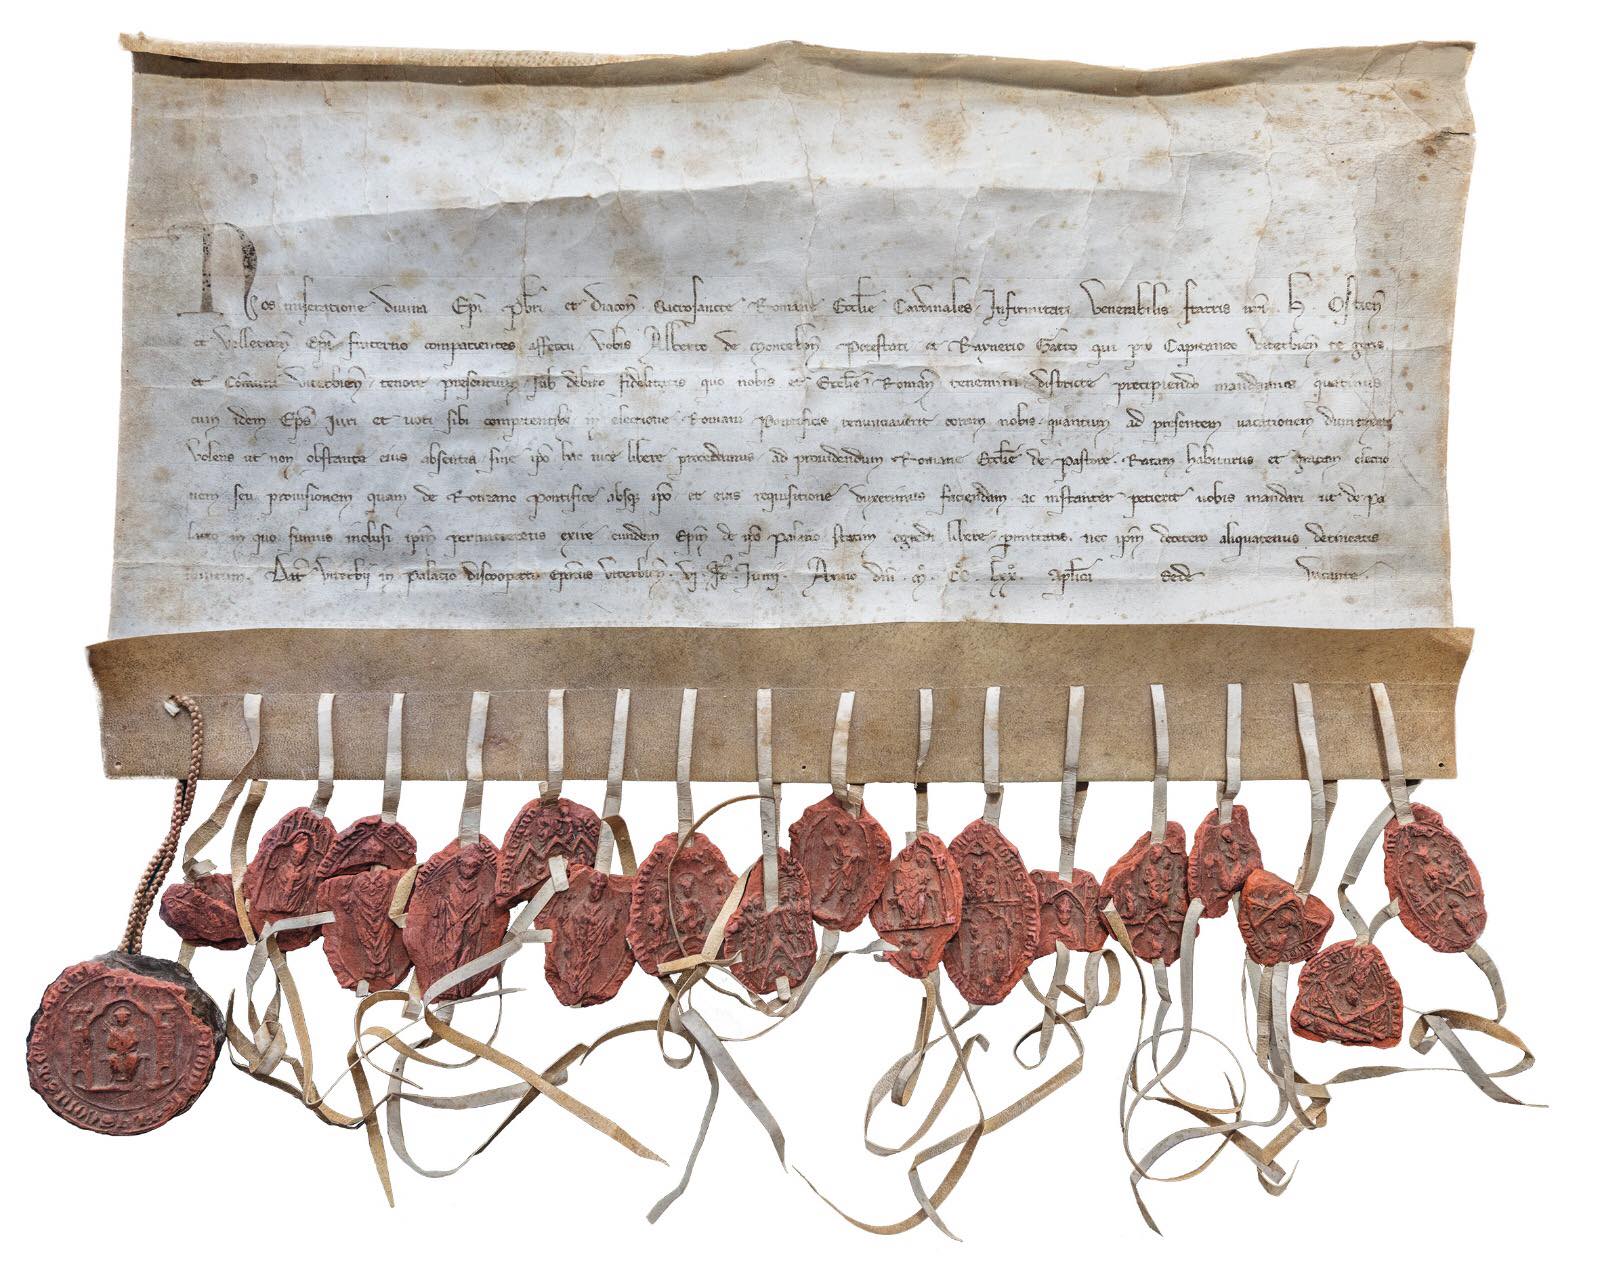 Nos miseratione divina Epi. Pbri. et Diacon. Sacrosancte Romane Ecclie Cardinales. Infirmitati Venerabilis fratris nri. h. Ostien
et Velletren Epi. fraterno compacientes affectu vobis Alberto de Montebon Potestati et Raynerio Gatto qui pro Capitaneo Viterbien se gerit
et Comuni Viterbien. tenore presentium sub debito fidelitatis quo nobis et Ecclie Roman tenemini districte precipiendo mandamus quatinus
cum idem Eps Iuri et voti sibi competentibz in electione Romani Pontificis renunciaverit coram nobis quantum ad presentem vacationem dumtaxat
Volens ut non obstante eius absentia sine ipo hac vice libere procedamus ad providendum Romane Ecclie de Pastore. Ratam habiturus et gratam electio
nem seu provisionem quam de Romano Pontifice absqz ipo et eius requisitione duxerimus faciendam ac instanter petierit vobis mandari ut de pa
latio in quo sumus inclusi ipm permitteretis exire eundem Epm de ipo Palatio statim egredi libere permittatis. nec ipm detereo aliquatenus detineatis
invitum. Dat Viterbii in palacio discooperto Epatus Viterbien. vi. Id. Iunii. Anno dni. M. CC. Lxx. Aplica Sede Vacante.